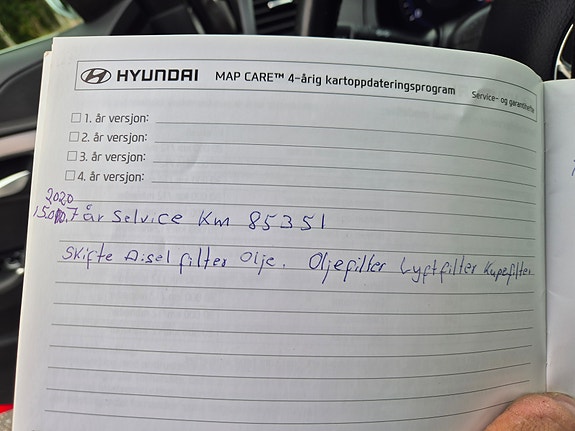 HYUNDAI MAP CARE™ 4-årig kartoppdateringsprogram Service- og garantihefte
1. år versjon:
2. år versjon:
3. år versjon:
4. år versjon:
2020
7 år Selvice Km 85351
Skifte Disel filter olje. Oljefilter Lyftfilter Kupefilter